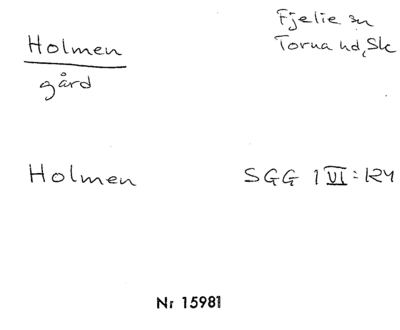 Holmen
gård
Fjelie sn
Torna hd, Sk
Holmen
SGG 1 VI:124
Nr 15981